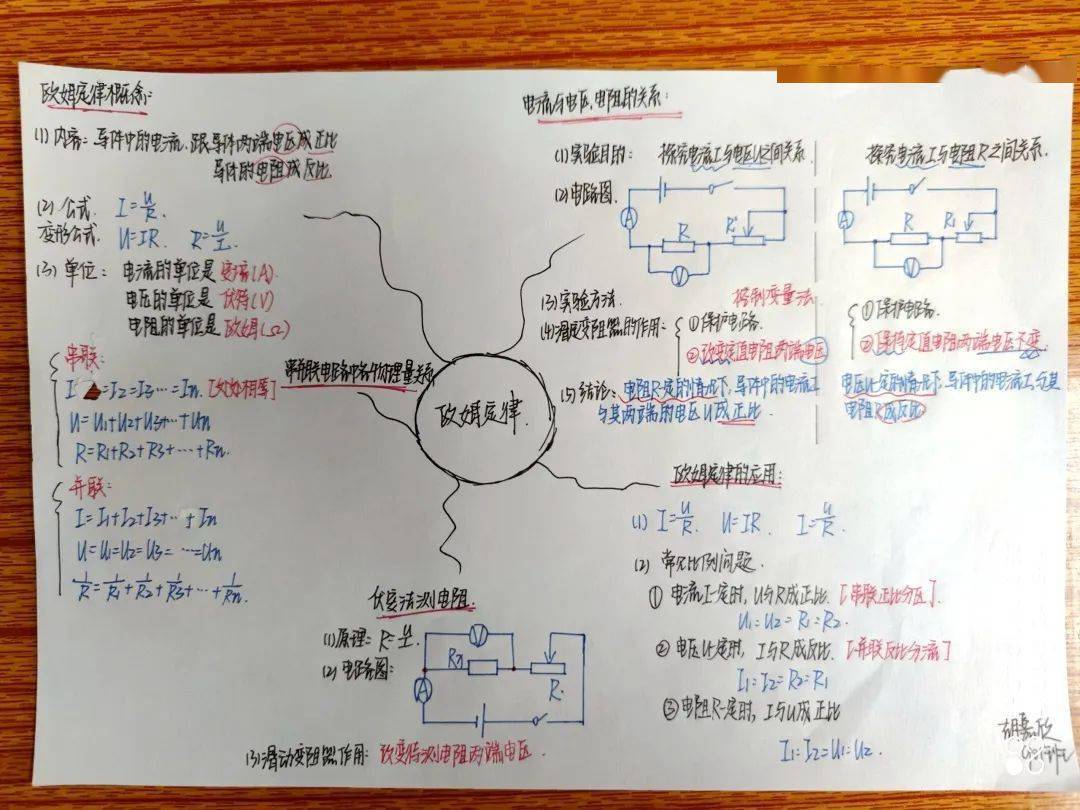 欧姆定律概念:
(1) 内容: 导体中的电流,跟导体两端电压成正比
导体的电阻成反比.
(2) 公式. I=U/R.
变形公式. U=IR. R=U/I.
(3) 单位: 电流的单位是安培(A).
电压的单位是伏特(V)
电阻的单位是欧姆(Ω)
串联:
I =I2=I3…=In. [处处相等]
U=U1+U2+U3+…+Un
R=R1+R2+R3+…+Rn.
并联:
I=I1+I2+I3+…+In
U=U1=U2=U3=…=Un
1/R=1/R1+1/R2+1/R3+…+1/Rn.
串并联电路中各个物理量关系
欧姆定律.
电流与电压,电阻的关系:
(1)实验目的: 探究电流I与电压U之间关系. 探究电流I与电阻R之间关系.
(2)电路图.
A R R' V
A R R' V
(3)实验方法. 控制变量法.
(4)滑变阻器的作用: ①保护电路. ①保护电路.
②改变定值电阻两端电压 ②保持定值电阻两端电压不变.
(5)结论: 电阻R一定的情况下,导体中的电流I 电压U一定的情况下,导体中的电流I与其
与其两端的电压U成正比. 电阻R成反比.
欧姆定律的应用:
(1) I=U/R. U=IR. I=U/R.
(2) 常见比例问题.
① 电流I一定时, U与R成正比. [串联正比分压].
U1:U2=R1:R2.
② 电压U一定时, I与R成反比. [并联反比分流]
I1:I2=R2:R1
③电阻R一定时, I与U成正比
I1:I2=U1:U2.
伏安法测电阻.
(1)原理: R=U/I.
(2)电路图:
V Rx A R.
(3)滑动变阻器作用: 改变待测电阻两端电压.